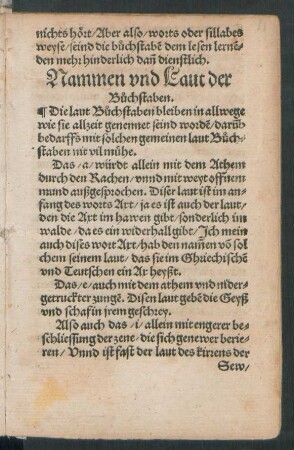 nichts hört/ Aber also/ worts oder sillabes
weyse/ seind die bůchstabē dem lesen lerne⸗
den mehr hinderlich dañ dienstlich.
Nammen vnd Laut der
Bůchstaben.
¶ Die laut Bůchstaben bleiben in allwege
wie sie allzeit genennet seind wordē/ darūb
bedarffs mit solchen gemeinen laut Bůch⸗
staben nit vil můhe.
Das/ a/ würdt allein mit dem Athem
durch den Rachen/ vnnd mit weyt offnem
mund außgesprochen. Diser laut ist im an⸗
fang des worts Art/ ja es ist auch der laut/
den die Axt im hawen gibt/ sonderlich im
walde/ da es ein widerhall gibt/ Jch mein
auch dises wort Axt/ hab den namen vō sol
chem seinem laut/ das sie im Ghriechischē
vnd Teutschen ein Ax heyßt.
Das/ e/ auch mit dem athem vnd nider⸗
getruckter zungē. Disen laut gebē die Geyß
vnd schaf in jrem geschrey.
Also auch das/ i/ allein mit engerer be⸗
schliessung der zene/ die sich genewer berie⸗
ren/ Vnnd ist fast der laut des kirrens der
Sew/